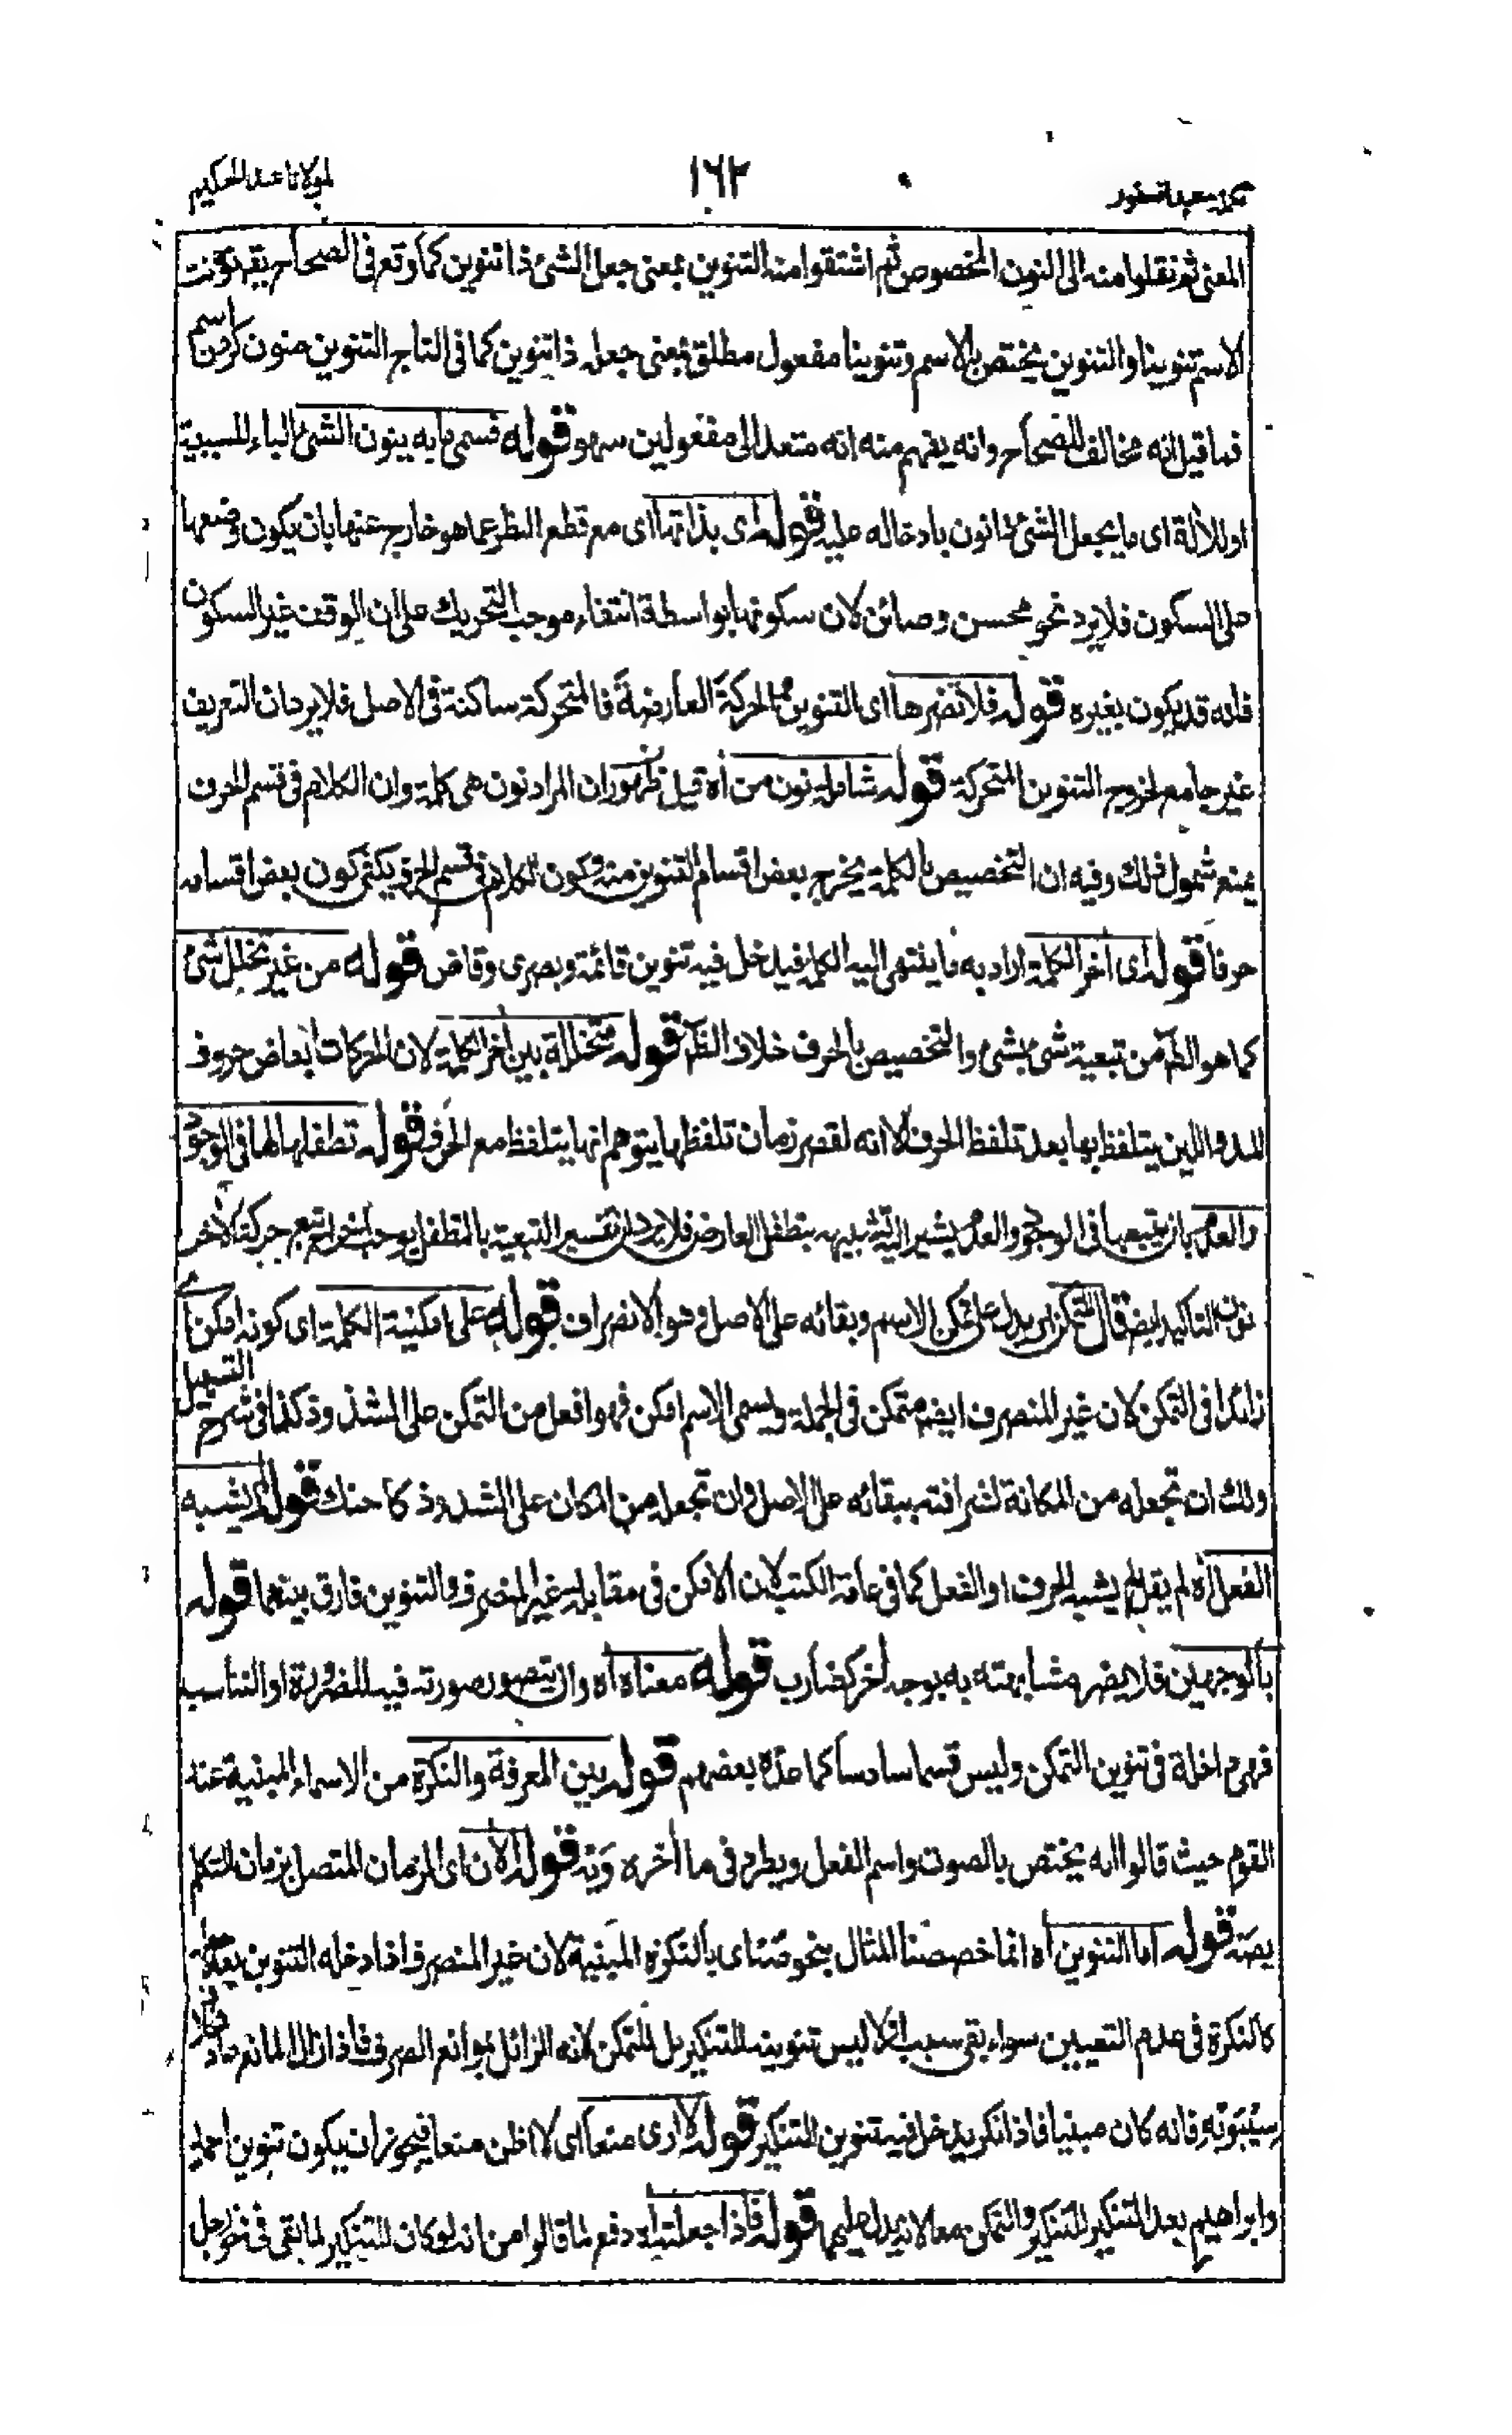 لمولانا عبد الحكيم
١٦٢
تكمله عبد الغفور
المعنى ثم نقلوا منه الى النون المخصوص ثم اشتقوا منه التنوين بمعنى جعل الشئ ذا تنوين كما وقع فى الصحاح يقه نونت
الاسم تنوينا والتنوين يختص بالاسم وتنوينا مفعول مطلق بمعنى جعله ذا تنوين كما فى التاج التنوين منون كردن اسم
فما قيل انه مخالف للصحاح وانه يفهم منه انه متعد الى مفعولين سهو قوله فسمى ما به ينون الشئ الباء للسببية
او للآلة اى ما يجعل الشئ ذا نون بادخاله عليه قوله اى بذاتها اى مع قطع النظر عما هو خارج عنها بان يكون وضعها
على السكون فلا يرد نحو محسن وصائن لان سكونها بواسطة انتفاء موجب التحريك على ان الوقف غير السكون
فانه قد يكون بغيره قوله فلا تضرها اى التنوين الحركة العارضة فالمتحركة ساكنة فى الاصل فلا يرد ان التعريف
غير جامع لخروج التنوين المتحركة قوله شامل لنون من اه قيل ظهور ان المراد نون هى كلمة وان الكلام فى قسم الحرف
يمنع شمول ذلك وفيه ان التخصيص بالكلمة يخرج بعض اقسام التنوين منه وكون الكلام فى قسم الحرف يكفى كون بعض اقسامه
حرفا قوله اى آخر الكلمة اراد به ما ينتهى اليه الكلمة فيدخل فيه تنوين قائمة وبصرى وقاض قوله من غير تخلل شئ
كما هو الظ من تبعية شئ بشئ والتخصيص بالحرف خلاف الظ قوله متخللة بين آخر الكلمة لان الحركات ابعاض حروف
المد واللين يتلفظ بها بعد تلفظ الحرف الا انه لقصر زمان تلفظها يتوهم انها يتلفظ مع الحرف قوله تطفلها لها فى الوجود
والعدم بان يتبعها فى الوجود والعدم يشير اليه تشبيهه بتطفل العارض فلا يرد ان تفسير التبعية بالتطفل يوجب خروج تبع حركة الآخر
نون التاكيد ايضه قال التمكن اى يدل على تمكن الاسم وبقائه على الاصل وهو الانصراف قوله على امكنية الكلمة اى كونه امكن اى
زائدا فى التمكن لان غير المنصرف ايضه متمكن فى الجملة ويسمى الاسم امكن فهو افعل من التمكن على الشذوذ كذا فى شرح التسهيل
ولك ان تجعله من المكانة لشرافته ببقائه على الاصل وان تجعله من المكان على الشذوذ كاحنك قوله لم يشبه
الفعل اه لم يقل لم يشبه الحرف او الفعل كما فى عامة الكتب لان الامكن فى مقابلة غير المنصرف والتنوين فارق بينهما قوله
بالوجهين فلا يضر مشابهته به بوجه آخر كضارب قوله معناه اه وان يتصور صورته فيه للضرورة او التناسب
فهى داخلة فى تنوين التمكن وليس قسما سادسا كما عده بعضهم قوله بين المعرفة والنكرة من الاسماء المبنية عند
القوم حيث قالوا انه يختص بالصوت واسم الفعل ويطرد فى ما آخره ويه قوله الآن اى الزمان المتصل بزمان التكلم
بصه قوله اما التنوين اه انما خصصنا المثال بنحو صه اى بالنكرة المبنية لان غير المنصرف اذا دخله التنوين بعد
كالنكرة فى عدم التعيين سواء بقى سبب اولا ليس تنوينه للتنكير بل للتمكن لانه الزائل بموانع الصرف فاذا زال المانع عاد بخلاف
سيبويه فانه كان مبنيا فاذا نكر يدخل فيه تنوين التنكير قوله لا ارى منعا اى لا اظن منعا فيجوز ان يكون تنوين احمد
وابراهيم بعد التنكير للتنكير والتمكن معا لانه يدل عليهما قوله فاذا جعلته اه دفع لما قالوا من انه لو كان للتنكير لما بقى فى نحو رجل